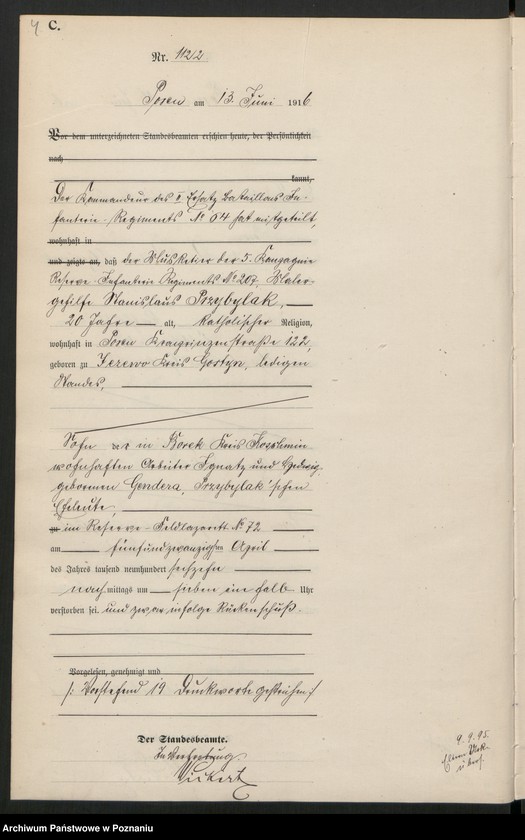 4 C.
Nr. 1122
Posen am 13. Juni 1916
Vor dem unterzeichneten Standesbeamten erschien heute, der Persönlichkeit
nach
kannt,
Der Kommandeur des II Ersatz Bataillons In-
fanterie-Regiments № 64 hat mitgeteilt,
wohnhaft in
und zeigte an, daß der Musketier der 5. Kompagnie
Reserve-Infanterie Regiments № 207, Maler-
gehilfe Stanislaus Przybylak,
20 Jahre alt, katholischer Religion,
wohnhaft in Posen Kronprinzenstraße 122,
geboren zu Kreis Gostyn, ledigen
Standes,
Sohn der in Borek Kreis Koschmin
wohnhaften Arbeiter Ignatz und Hedwig
geborenen Gendera, Przybylak'schen
Eheleute,
zu im Reserve-Feldlazarett № 72
am fünfundzwanzigsten April
des Jahres tausend neunhundert sechzehn
nachmittags um sieben ein halb Uhr
verstorben sei. und zwar infolge Rückenschuß.
Vorgelesen, genehmigt und
/: Vorstehend 19 Druckworte gestrichen :/
Der Standesbeamte.
In Vertretung
9. 9. 95.
Archiwum Państwowe w Poznaniu